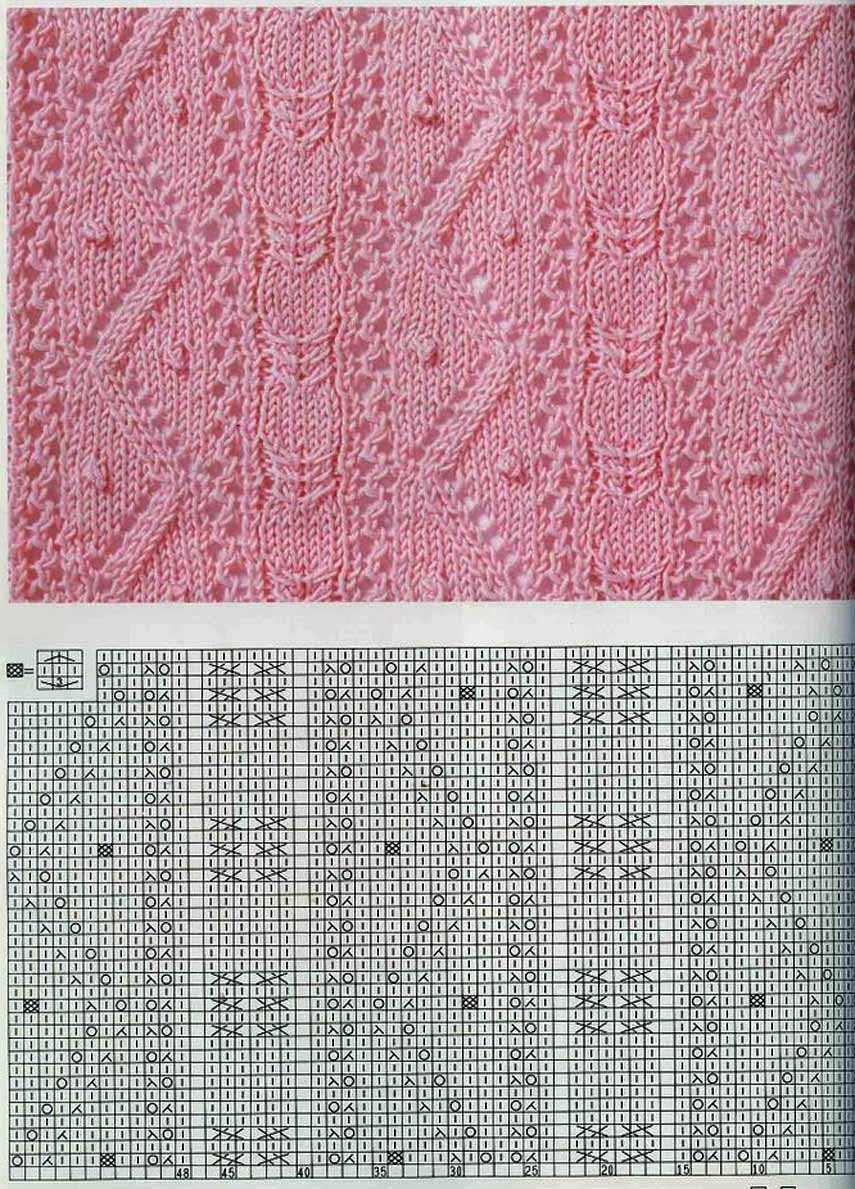 3
48 45 40 35 30 25 20 15 10 5